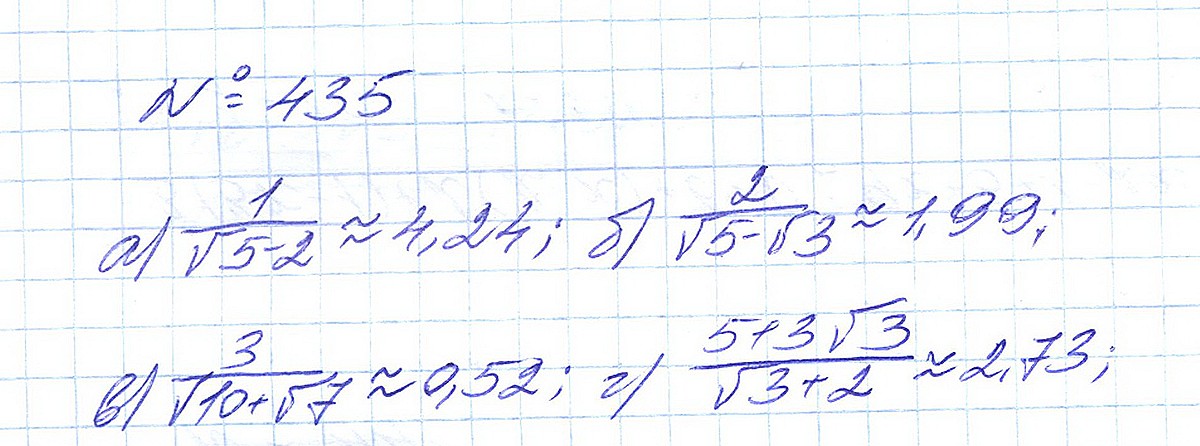 № 435
а) 1/(√5-2) ≈ 4,24; б) 2/(√5-√3) ≈ 1,99;
в) 3/(√10+√7) ≈ 0,52; г) (5+3√3)/(√3+2) ≈ 2,73;